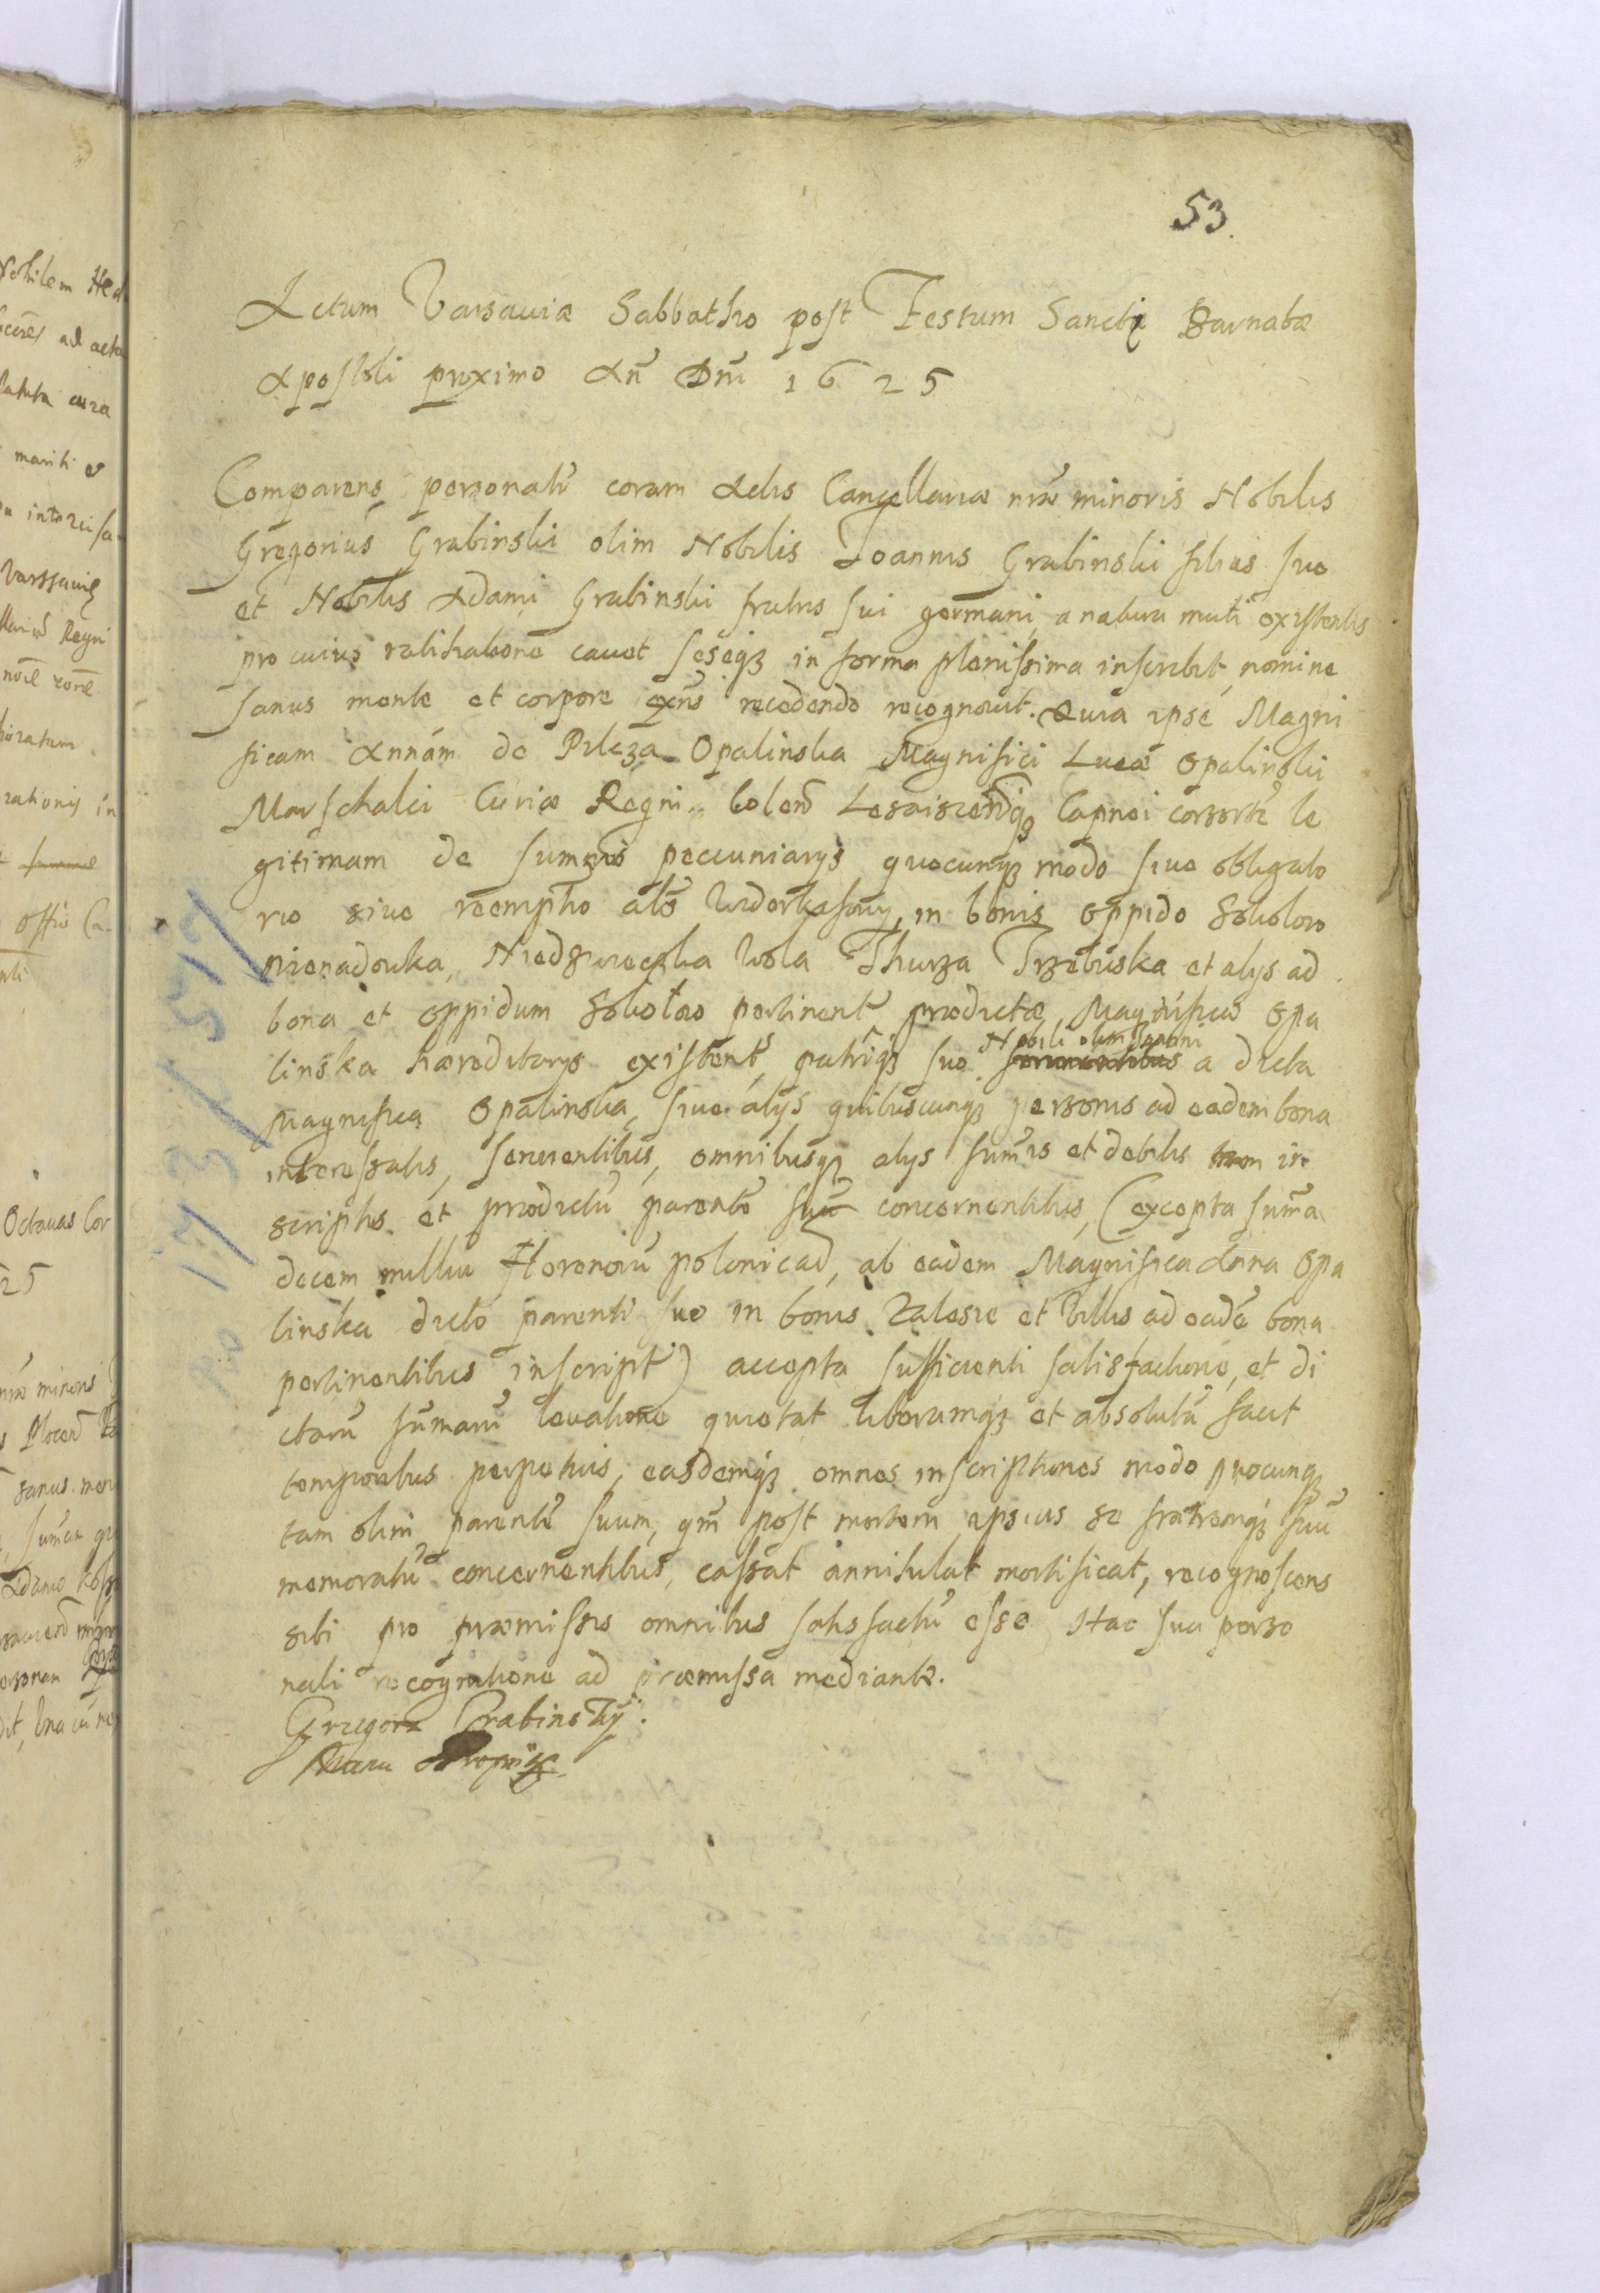 53.
Actum Varsaviæ Sabbatho post Festum Sancti Barnabæ
Apostoli proximo Añ Dñi 1625
Comparens personalr̃ coram Actis Cancellariæ nr̃æ minoris Nobilis
Gregorius Grabinski olim Nobilis Joannis Grabinski filius suo
et Nobilis Adami Grabinski fratris sui germani, a natura muti existentis
pro cuius ratihabitione cavet seseq3 in forma plenissima inscribit, nomine
sanus mente et corpore exñs recedendo recognovit. Quia ipse Magni
ficam Annam de Pilcza Opalinska Magnifici Lucæ Opalinski
Marschalci Curiæ Regni, Colen̄ Lesaiscen̄q3 Capnei consortẽ le
gitimam de summis pecuniarys quocunq3 modo sive obligato
rio sive reemptio als Widerkafowy, in bonis oppido Sokolow
Nienadowka, Niedzwiecka Wola Thurza Trzebuska et alys ad
bona et oppidum Sokolow pertinent prædictæ Magnificæ Opa
linska hæreditarys existent, patriq3 suo Nobili olim Joanni a dicta
Magnifica Opalinska, sive alys quibuscunq3 personis ad eadem bona
interessatis, servientibus, omnibusq3 alys sum̃is et debitis in
scriptis et prædictũ parentẽ suũ concernentibus, (excepta sum̃a
decem milliu Florenorũ polonicað, ab eadem Magnifica Anna Opa
linska dicto parenti suo in bonis Zalesie et Villis ad eadẽ bona
pertinentibus inscript) accepta sufficienti satisfactione, et di
ctarũ sum̃arũ levatione quietat liberumq3 et absolutũ facit
temporibus perpetuis, easdemq3 omnes inscriptiones modo quocunq3
tam olim parentẽ suum, qm̃ post mortem ipsius se fratremq3 suũ
memoratũ concernentibus, cassat annihilat mortificat, recognoscens
sibi pro præmissis omnibus satisfactũ esse Hac sua perso
nali recognitione ad præmissa mediante.
Grzegorz Grabinsky.